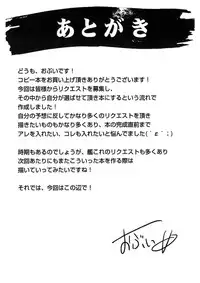 あとがき
どうも、おぶいです！
コピー本をお買い上げ頂きありがとうございます！
今回は皆様からリクエストを募集し、
その中から自分が選ばせて頂き本にするという流れで
作成しました！
自分の予想に反してかなり多くのリクエストを頂き
描きたいものもかなり多く、本の完成直前まで
アレを入れたい、コレも入れたいと悩んでました(´ε｀；)
時期もあるのでしょうが、艦これのリクエストも多くあり
次回あたりにもまたこういった本を作る際は
描いていってみたいですね！
それでは、今回はこの辺で！
おぶい